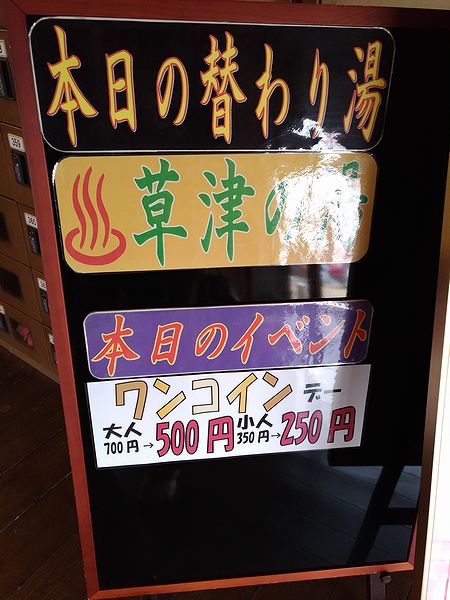 本日の替わり湯
草津の湯
本日のイベント
ワンコインデー
大人 700円→500円 小人 350円→250円
359